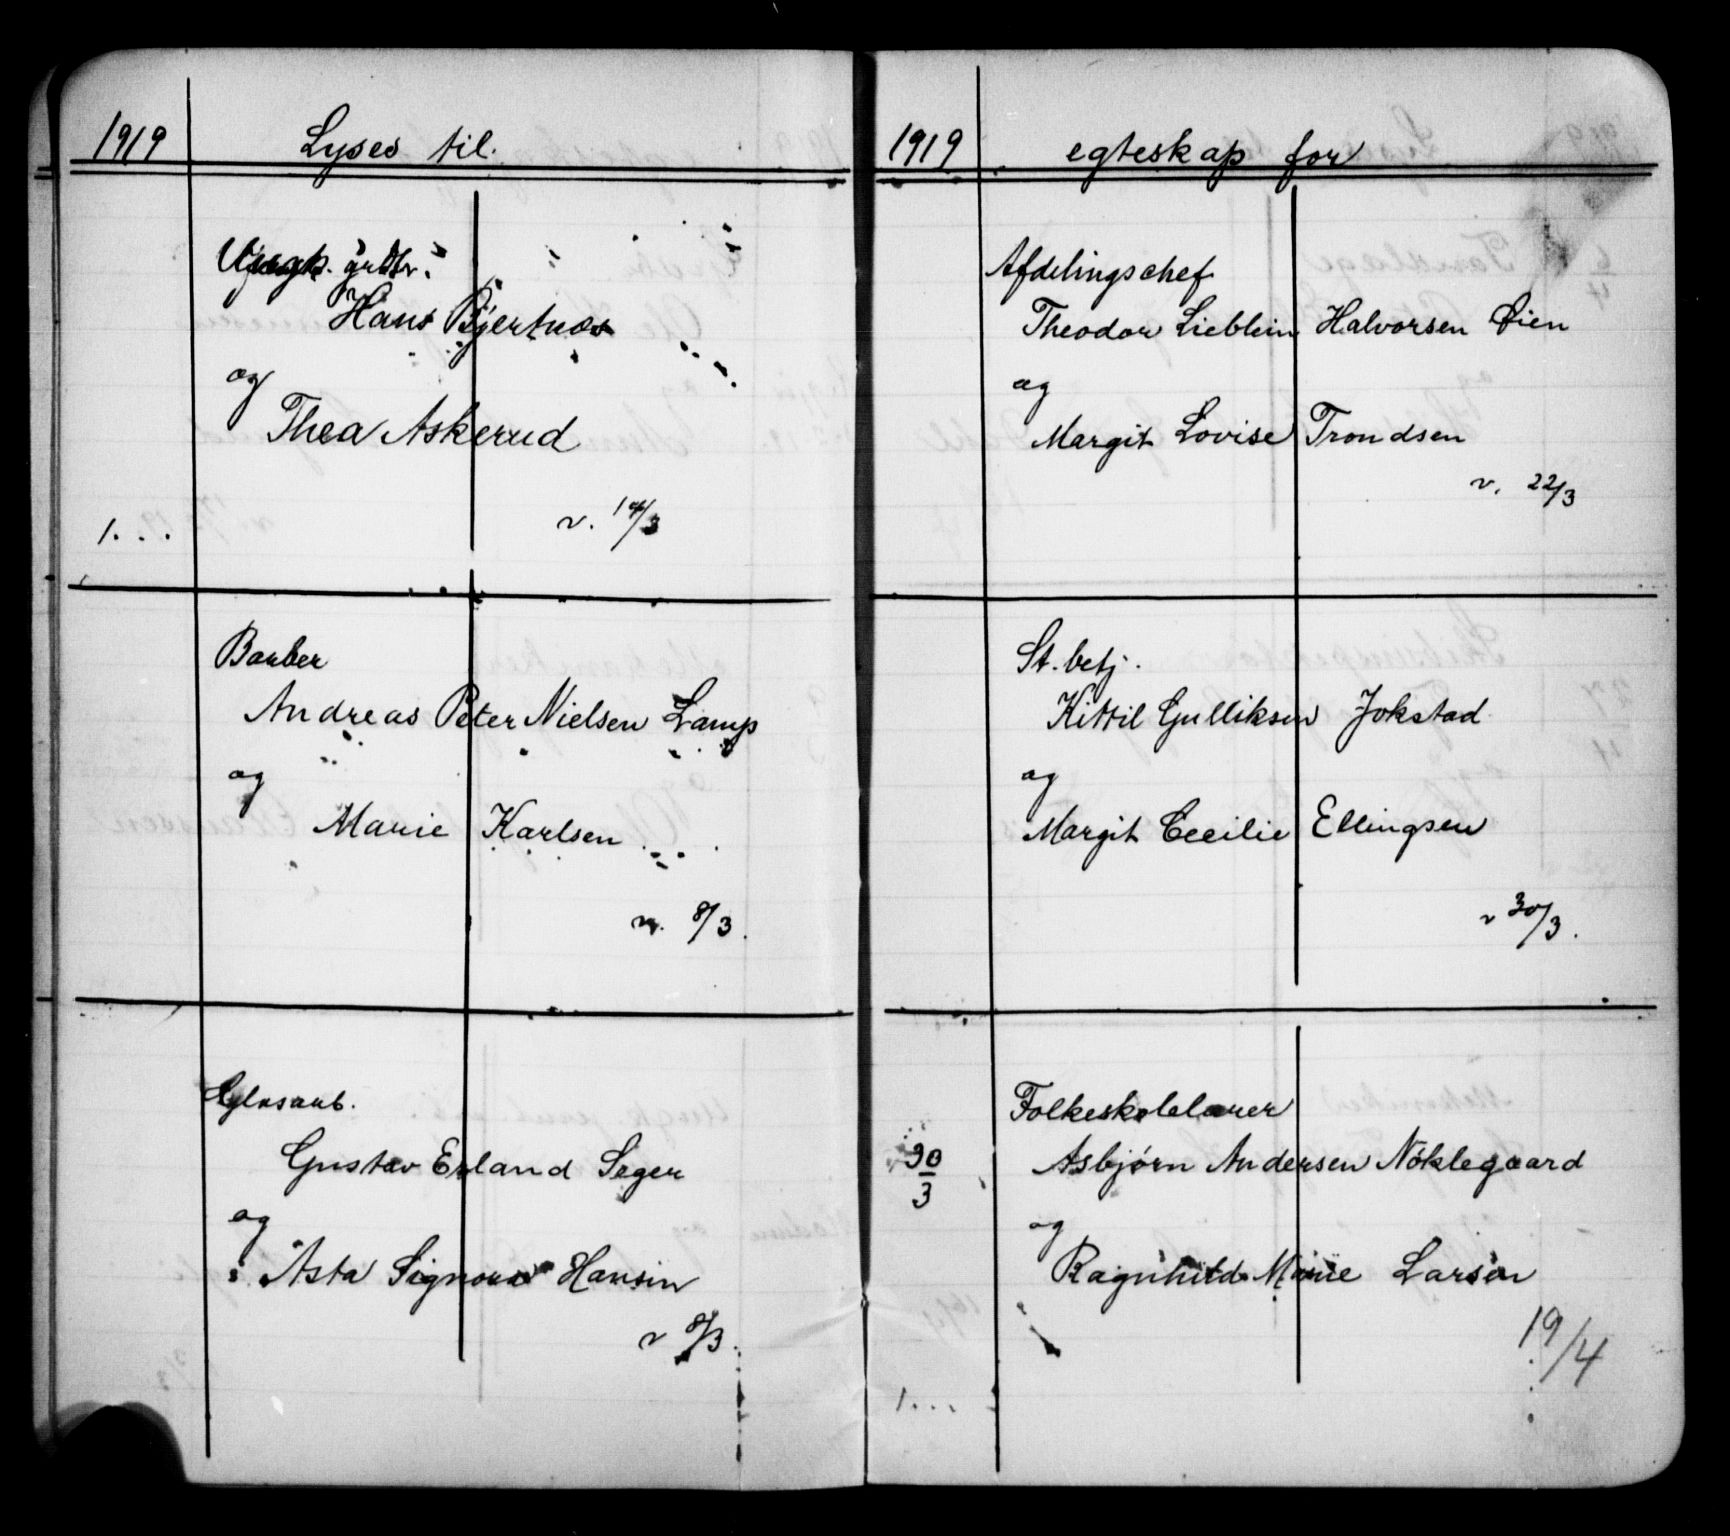 1919 Lyses til.
Hans Bjertnæs
og
Thea Askerud
v. 14/3
1...
Barber
Andreas Peter Nielsen Lamp
og
Marie Karlsen
v. 8/3.
Glasarb.
Gustav Erland Seger
og
Asta Signora Hansen
v 8/3.
1919 egteskap for
Afdelingschef
Theodor Lieblein Halvorsen Øien
og
Margit Lovise Trondsen
v. 22/3
St. betj.
Kittil Gulliksen Jokstad
og
Margit Cecilie Ellingsen
v 30/3.
Folkeskolelærer
30/3 Asbjørn Andersen Nöklegaard
og
Ragnhild Marie Larsen
19/4
1...